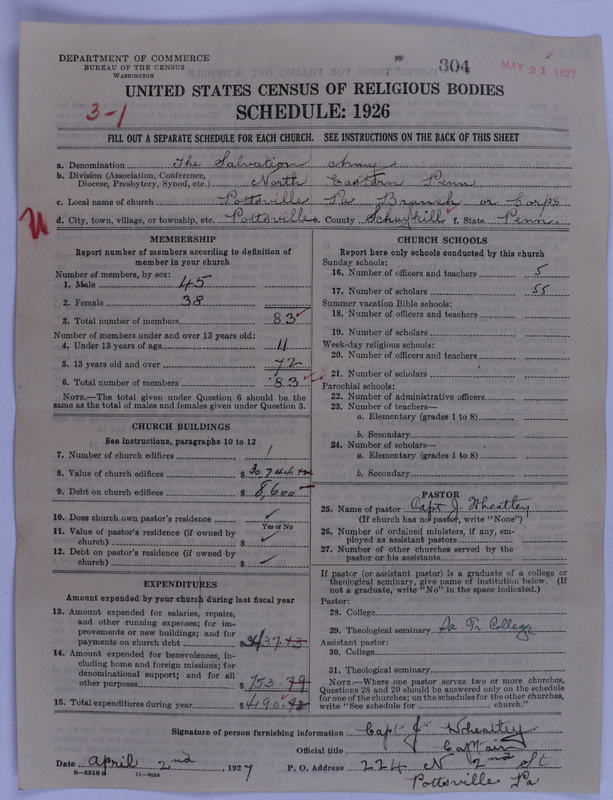 DEPARTMENT OF COMMERCE
BUREAU OF THE CENSUS
WASHINGTON
304
MAY 21 1927
UNITED STATES CENSUS OF RELIGIOUS BODIES
SCHEDULE: 1926
3-1
FILL OUT A SEPARATE SCHEDULE FOR EACH CHURCH. SEE INSTRUCTIONS ON THE BACK OF THIS SHEET
a. Denomination The Salvation Army
b. Division (Association, Conference,
Diocese, Presbytery, Synod, etc.) North Eastern Penn
c. Local name of church Pottsville Pa Branch or Corps
d. City, town, village, or township, etc. Pottsville e. County Schuylkill f. State Penn.
MEMBERSHIP
Report number of members according to definition of
member in your church
Number of members, by sex:
1. Male 45
2. Female 38
3. Total number of members 83
Number of members under and over 13 years old:
4. Under 13 years of age 11
5. 13 years old and over 72
6. Total number of members 83
NOTE.—The total given under Question 6 should be the
same as the total of males and females given under Question 3.
CHURCH BUILDINGS
See instructions, paragraphs 10 to 12
7. Number of church edifices 1
8. Value of church edifices $30,744
9. Debt on church edifices $8,600
10. Does church own pastor's residence
Yes or No
11. Value of pastor's residence (if owned by
church) $
12. Debt on pastor's residence (if owned by
church) $
EXPENDITURES
Amount expended by your church during last fiscal year
13. Amount expended for salaries, repairs,
and other running expenses; for im-
provements or new buildings; and for
payments on church debt $ 3737.13
14. Amount expended for benevolences, in-
cluding home and foreign missions; for
denominational support; and for all
other purposes $ 753.79
15. Total expenditures during year $ 4490.92
CHURCH SCHOOLS
Report here only schools conducted by this church
Sunday schools:
16. Number of officers and teachers 5
17. Number of scholars 55
Summer vacation Bible schools:
18. Number of officers and teachers
19. Number of scholars
Week-day religious schools:
20. Number of officers and teachers
21. Number of scholars
Parochial schools:
22. Number of administrative officers
23. Number of teachers—
a. Elementary (grades 1 to 8)
b. Secondary
24. Number of scholars—
a. Elementary (grades 1 to 8)
b. Secondary
PASTOR
25. Name of pastor Capt J. Wheatley
(If church has no pastor, write "None")
26. Number of ordained ministers, if any, em-
ployed as assistant pastors
27. Number of other churches served by the
pastor or his assistants
If pastor (or assistant pastor) is a graduate of a college or
theological seminary, give name of institution below. (If
not a graduate, write "No" in the space indicated.)
Pastor:
28. College
29. Theological seminary Sa Tr College
Assistant pastor:
30. College
31. Theological seminary
NOTE.—Where one pastor serves two or more churches,
Questions 28 and 29 should be answered only on the schedule
for one of the churches; on the schedules for the other churches,
write "See schedule for church."
Signature of person furnishing information Capt J Wheatley
Official title Captain
Date April 2nd, 1927 P. O. Address 224 N 2nd St
8-5518a 11-9064 Pottsville Pa